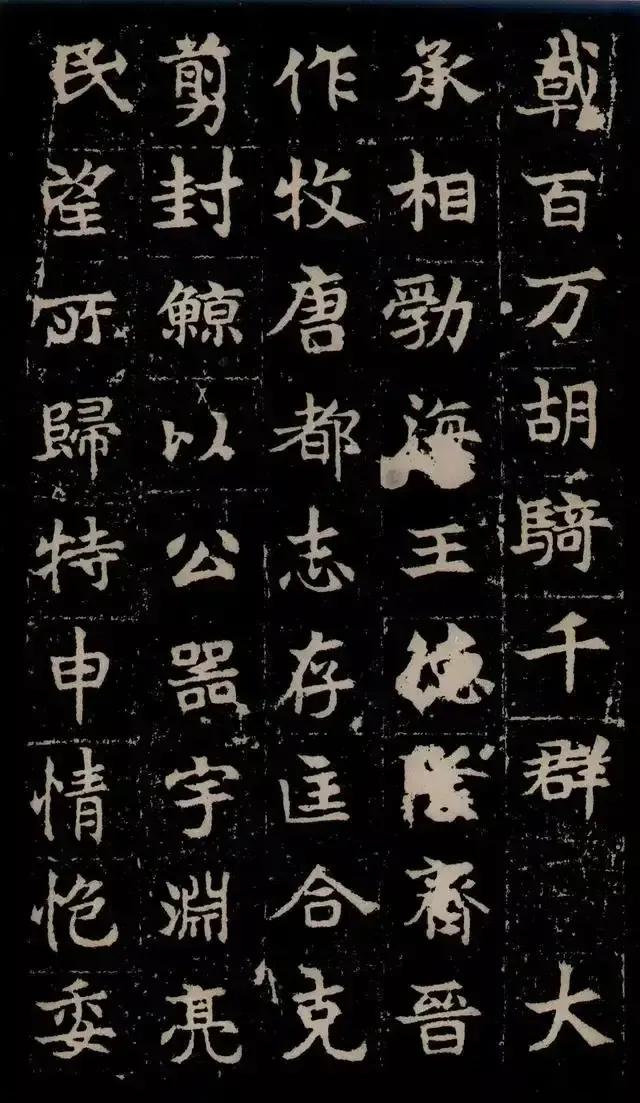 戟百万胡騎千群 大
承相勃海王德隆齊晉
作牧唐都志存匡合克
剪封鯨以公器宇淵亮
民望所歸特申情委